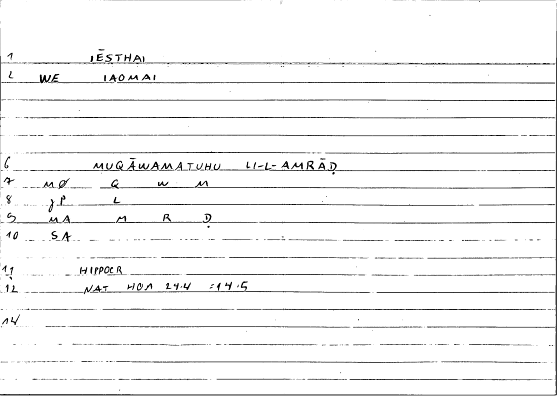 1 IĒSTHAI
2 WE IAOMAI
6 MUQĀWAMATUHU LI-L-AMRĀḌ
7 MØ Q W M
8 gP L
9 MA M R Ḍ
10 SA
11 HIPPOCR
12 NAT HOM 24.4 =14.5
14